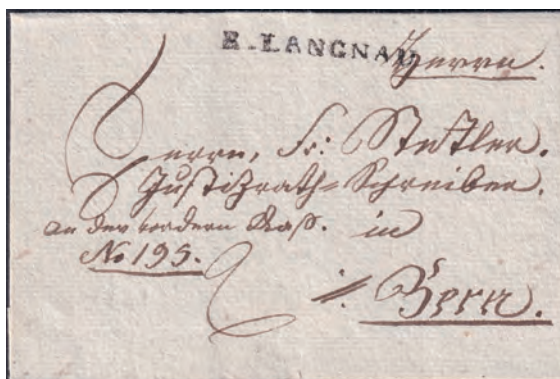 E. LANGNAU
Herrn.
Herrn, Fr: Stettler.
Justizrath-Schreiber,
an der vordern Gass. in
No 195.
Bern.